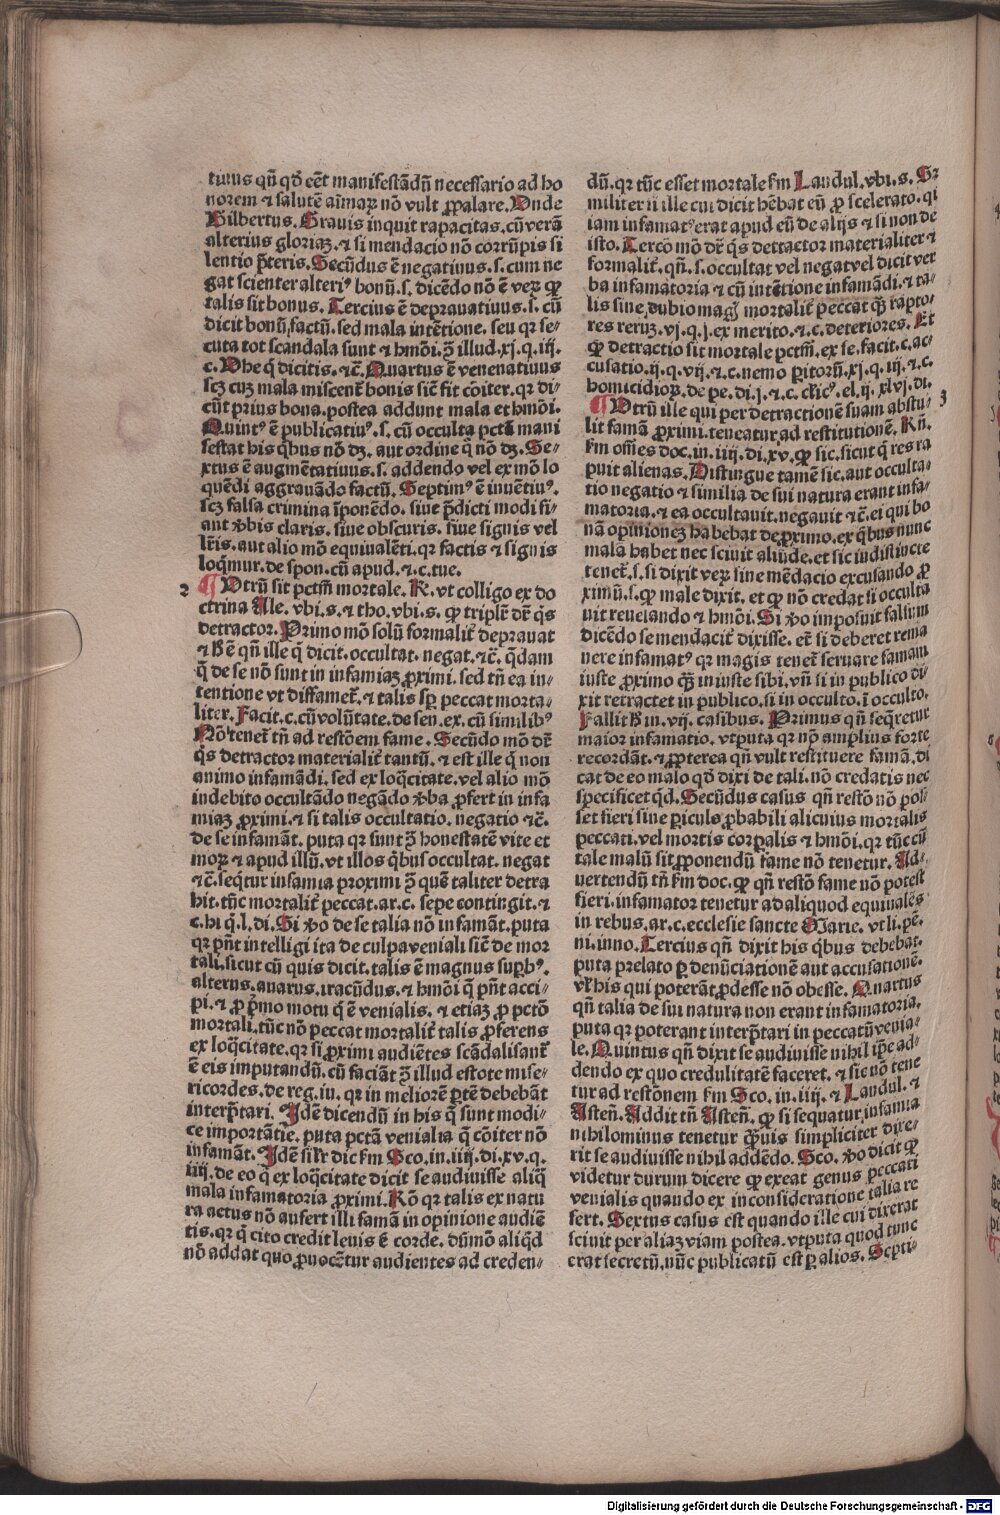 tiuus qñ qđ eēt manifestādū necessario ad ho
norem ⁊ salutē aīmaꝝ nō vult ꝓpalare. Unde
Gilbertus. Grauis inquit rapacitas. cū verā
alterius gloriaꝫ. ⁊ si mendacio nō corrūpis si
lentio p̄teris. Secūdus ē negatiuus. s. cum ne
gat scienter alteriꝰ bonū. s. dicēdo nō ē veꝝ ꝙ
talis sit bonus. Tercius ē deprauatiuus. s. cū
dicit bonū, factū. sed mala intētione. seu qꝛ se⸗
cuta tot scandala sunt ⁊ hmōi. ꝯ̄ illud. xj. q. iij.
c. Uhe q̄ dicitis. ⁊c̄. Quartus ē venenatiuus
scꝫ cuꝫ mala miscent᷑ bonis sicē fit cōiter. qꝛ di⸗
cūt prius bona. postea addunt mala et hmōi.
Quintꝰ ē publicatiuꝰ. s. cū occulta pctā mani
festat his q̄bus nō dꝫ. aut ordine q̄ nō dꝫ. Se⸗
xtus ē augmētatiuus. s. addendo vel ex mō lo
quēdi aggrauādo factū. Septimꝰ ē inuētiuꝰ.
scꝫ falsa crimina īponēdo. siue p̄dicti modi fi⸗
ant ꝟbis claris. siue obscuris. siue signis vel
lr̄is. aut alio mō equiualēti. qꝛ factis ⁊ signis
loq̄mur. de spon. cū apud. ⁊ c. tue.
2 ¶ Utrū sit pctm̄ mortale. R̄. vt colligo ex do
ctrina Ale. vbi. s. ⁊ tho. vbi. s. ꝙ triplr̄ dr̄ q̄s
detractor. Primo mō solū formalit᷑ deprauat
⁊ ꝩ ē qñ ille q̄ dicit. occultat. negat. ⁊c̄. q̄dam
q̄ de se nō sunt in infamiaꝫ ꝓximi. sed tn̄ ea in⸗
tentione vt diffamet᷑. ⁊ talis sꝑ peccat morta⸗
liter. Facit. c. cū volūtate. de sen. ex. cū similibꝰ
Nō tenet᷑ tn̄ ad restōem fame. Secūdo mō dr̄
q̄s detractor materialit᷑ tantū. ⁊ est ille q̄ non
animo infamādi. sed ex loq̄citate. vel alio mō
indebito occultādo negādo ꝟba ꝓfert in infa
miaꝫ ꝓximi. ⁊ si talis occultatio. negatio ⁊c̄.
de se infamāt. puta qꝛ sunt ꝯ̄ honestatē vite et
moꝝ ⁊ apud illū. vt illos q̄bus occultat. negat
⁊c̄. seq̄tur infamia proximi ꝯ̄ quē taliter detra
hit. tūc mortalit᷑ peccat. ar. c. sepe contingit. ⁊
c. hi q̄. l. di. Si ꝟo de se talia nō infamāt. puta
qꝛ pn̄t intelligi ita de culpa veniali sicē de mor
tali. sicut cū quis dicit. talis ē magnus suꝑbꝰ.
alterus. auarus. iracūdus. ⁊ hmōi q̄ pn̄t acci⸗
pi. ⁊ ꝓ p̄mo motu q̄ ē venialis. ⁊ etiaꝫ ꝓ pctō
mortali. tūc nō peccat mortalit᷑ talis ꝓferens
ex loq̄citate. qꝛ si ꝓximi audiētes scādalisant᷑
ē eis imputandū. cū faciāt ꝯ̄ illud estote mise⸗
ricordes. de reg. iu. qꝛ in meliorē ꝑtē debebāt
interp̄tari. Idē dicendū in his q̄ sunt modi⸗
ce importātie. puta pctā venialia q̄ cōiter nō
infamāt. Idē silr̄ dic ẜm Sco. in. iiij. di. xv. q.
iiij. de eo q̄ ex loq̄citate dicit se audiuisse aliq̄
mala infamatoria ꝓximi. Rō qꝛ talis ex natu
ra actus nō aufert illi famā in opinione audiē
tis. qꝛ q̄ cito credit leuis ē corde. dūmō aliq̄d
nō addat quo ꝓuocētur audientes ad creden⸗
dū. qꝛ tūc esset mortale ẜm Laudul. vbi. s. Si
militer ii ille cui dicit hēbat eū ꝓ scelerato. qꝛ
iam infamatꝰ erat apud eū de alijs ⁊ si non de
isto. Tercō mō dr̄ q̄s detractor materialiter ⁊
formalit᷑. qñ. s. occultat vel negat vel dicit ver
ba infamatoria ⁊ cū intētione infamādi. ⁊ ta⸗
lis sine dubio magꝭ mortalit᷑ peccat qꝫ rapto⸗
res reruꝫ. vj. q. j. ex merito. ⁊ c. deteriores. Et
ꝙ detractio sit mortale pctm̄. ex se. facit. c. ac⸗
cusatio. ij. q. vij. ⁊ c. nemo ꝑitorū. xj. q. iij. ⁊ c.
homicidioꝝ. de pe. di. j. ⁊ c. clic̄ꝰ. el. ij. xlvj. di.
¶ Utrū ille qui per detractionē suam abstu⸗ 3
lit famā ꝓximi. teneatur ad restitutionē. Rn̄.
ẜm om̄es doc. in. iiij. di. xv. ꝙ sic. sicut q̄ res ra
puit alienas. Distingue tamē sic. aut occulta⸗
tio negatio ⁊ similia de sui natura erant infa⸗
matoria. ⁊ ea occultauit. negauit ⁊c̄. ei qui bo
nā opinionez habebat de ꝓximo. ex q̄bus nunc
mala habet nec sciuit aliūde. et sic indistincte
tenet᷑. s. si dixit veꝝ sine mēdacio excusando ꝓ
ximū. s. ꝙ male dixit. et ꝙ nō credat si occulta
uit reuelando ⁊ hmōi. Si ꝟo imposuit falsum
dicēdo se mendacit᷑ dixisse. et᷑ si deberet rema
nere infamatꝰ qꝛ magis tenet᷑ seruare famam
iuste ꝓximo qꝫ iniuste sibi. vn̄ si in publico di
xit retractet in publico. si in occulto. ī occulto.
Fallit ꝩ in. vij. casibus. Primus qñ seq̄retur
maior infamatio. vtputa qꝛ nō amplius forte
recordāt᷑. ⁊ ꝓpterea qñ vult restituere famā. di
cat de eo malo qđ dixi de tali. nō credatis nec
specificet q̄d. Secūdus casus qñ restō nō pos⸗
set fieri sine ꝑiculo ꝓbabili alicuius mortalis
peccati. vel mortis corꝑalis ⁊ hmōi. qꝛ tūc cū
tale malū sit ꝓponendū fame nō tenetur. Ad⸗
uertendū tn̄ ẜm doc. ꝙ qñ restō fame nō potest
fieri. infamator tenetur ad aliquod equiualēs
in rebus. ar. c. ecclesie sancte Marie. vt li. pē.
ni. inno. Tercius qñ dixit his q̄bus debebat.
puta prelato ꝑ denūciationē aut accusationē.
vl̓ his qui poterāt ꝓdesse nō obesse. Quartus
qñ talia de sui natura non erant infamatoria.
puta qꝛ poterant interp̄tari in peccatū venia⸗
le. Quintus qñ dixit se audiuisse nihil ip̄e ad⸗
dendo ex quo credulitatē faceret. ⁊ sic nō tene
tur ad restōnem ẜm Sco. in. iiij. ⁊ Laudul. ⁊
Asteñ. Addit tn̄ Asteñ. ꝙ si sequatur infamia
nihilominus tenetur ꝙ̄uis simpliciter dixe⸗
rit se audiuisse nihil addēdo. Sco. ꝟo dicit ꝙ
videtur durum dicere ꝙ exeat genus peccati
venialis quando ex inconsideratione talia re
fert. Sextus casus est quando ille cui dixerat
sciuit per aliaꝫ viam postea. vtputa quod tunc
erat secretū. nūc publicatū est ꝑ alios. Septi⸗
Digitalisierung gefördert durch die Deutsche Forschungsgemeinschaft - DFG